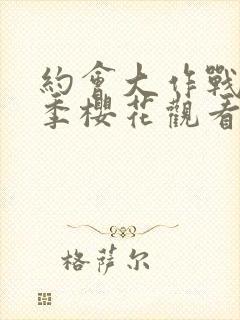 約會大作戰
季櫻花觀看
格萨尔